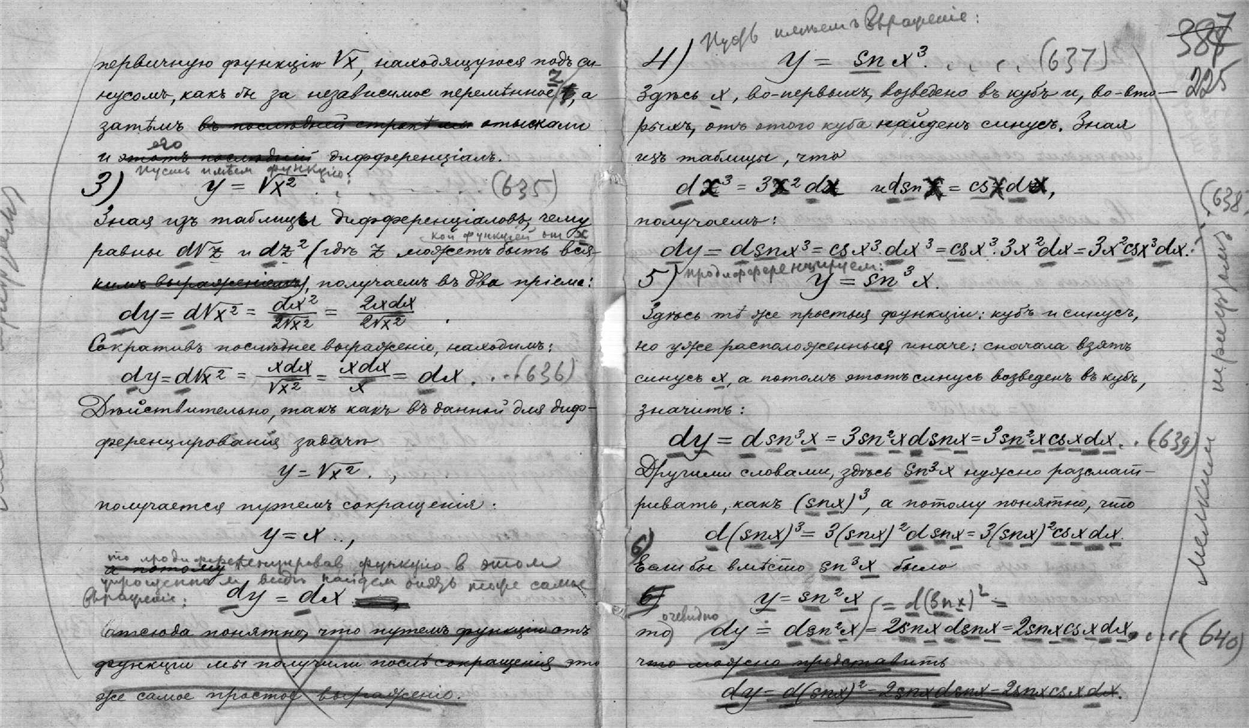 первичную функцію √x, находящуюся подъ си-
нусомъ, какъ бы за независимое переменное z, а
затѣмъ въ послѣдней строкѣ мы отыскали
и его этотъ послѣдній дифференціалъ.
Пусть имѣемъ функцію:
3) y = √x² (635)
Зная изъ таблицы дифференціаловъ, чему
кой функціей от x
равны d√z и dz² (гдѣ z можетъ быть вся-
кимъ выраженіемъ), получаемъ въ два пріема:
dy = d√x² = dx²/2√x² = 2xdx/2√x²
Сокративъ послѣднее выраженіе, находимъ:
dy = d√x² = xdx/√x² = xdx/x = dx. . . (636)
Дѣйствительно, такъ какъ въ данной для диф-
ференцированія задачѣ
y = √x² . ,
получается путемъ сокращенія:
y = x . ,
а потому
то продиференцировав функцию в этом
упрощенном виде найдем опять тоже самое
выражение: dy = dx
Отсюда понятно, что путемъ функціи отъ
функціи мы получили послѣ сокращенія это
же самое простое выраженіе.
387
225
Пусть имѣемъ выражение:
4) y = sn x³ . . . . (637)
Здѣсь x, во-первыхъ, возведено въ кубъ и, во-вто-
рыхъ, отъ этого куба найденъ синусъ. Зная
изъ таблицы, что
dx³ = 3x² dx и dsnx = csxdx,
(638)
получаемъ:
dy = dsnx³ = csx³. dx³ = csx³. 3x²dx = 3x²csx³dx.
продифференцируем:
5) y = sn³ x.
Здѣсь тѣ же простыя функціи: кубъ и синусъ,
но уже расположенныя иначе: сначала взятъ
синусъ x, а потомъ этотъ синусъ возведенъ въ кубъ,
значитъ:
dy = dsn³x = 3sn²xdsnx = 3sn²xcsxdx. . (639)
Другими словами, здѣсь sn³x нужно разсмат-
ривать, какъ (snx)³, а потому понятно, что
d(snx)³ = 3(snx)²dsnx = 3(snx)²csxdx.
6)
Если бы вмѣсто sn³x было
6) y = sn²x (= d(snx)² =
очевидно
то dy = dsn²x) = 2snxdsnx = 2snxcsxdx. . . . (640)
что можно представить
dy = d(snx)² = 2snxdsnx = 2snxcsxdx.
мелким шрифтом